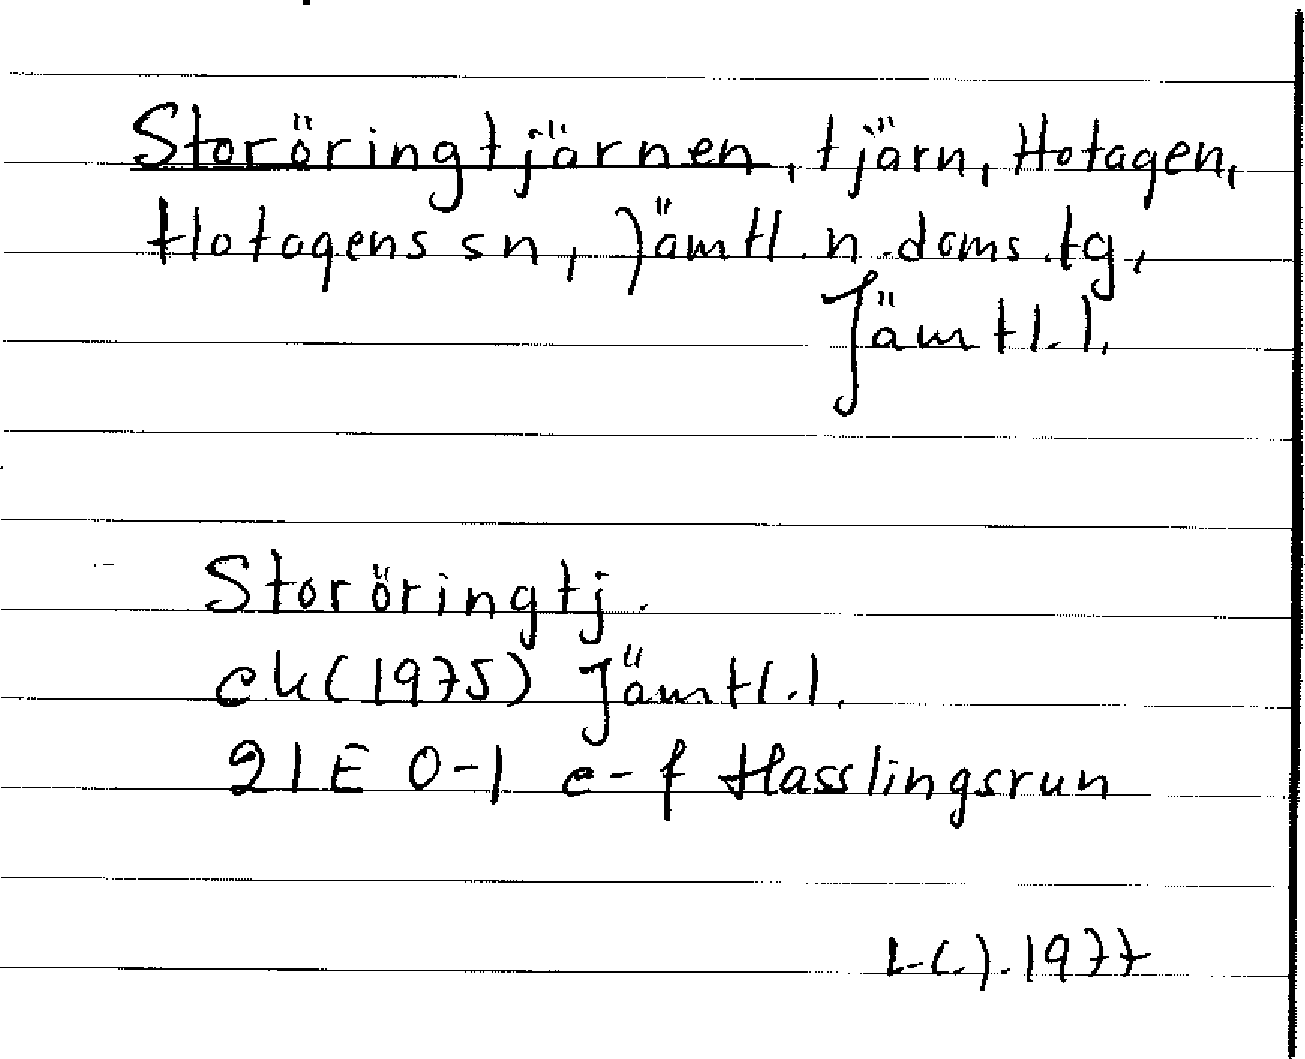 Storöringtjärnen, tjärn, Hotagen,
Hotagens sn, Jämtl. n. doms. tg,
Jämtl. l.
Storöringtj.
ek (1975) Jämtl. l.
21E 0-1 e-f Hasslingsrun
1977